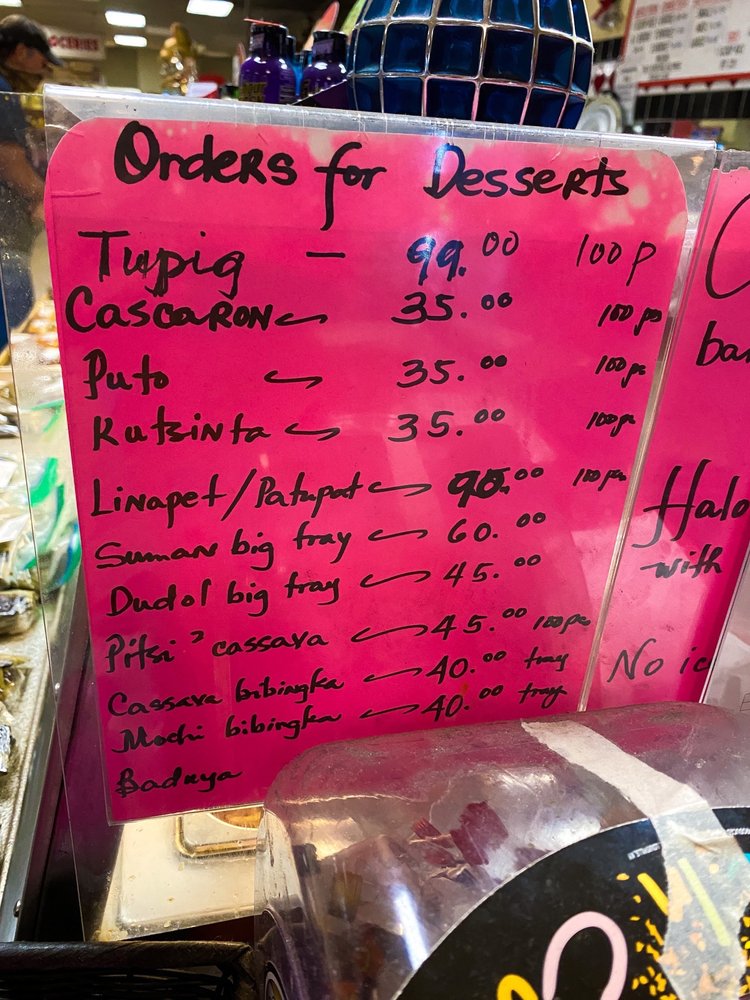 Orders for Desserts
Tupig — 99.00 100 p
Cascaron 35.00 100 pc
Puto 35.00 100pc
Kutsinta 35.00 100pc
Linapet/Patupat 90.00 100pcs
Suman big tray 60.00
Dudol big tray 45.00
Pitsi 2 cassava 45.00 100pc
Cassava bibingka 40.00 tray
Mochi bibingka 40.00 tray
Baduya
ban
Halo
with
No ic